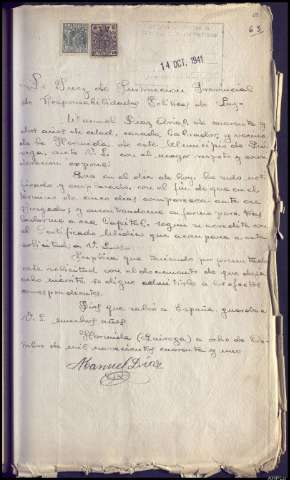 63
14 OCT. 1941
S. Juez de Instruccion Provincial
de Responsabilidades Politicas de Lugo
Manuel Diaz, de cuarenta y
dos años de edad, casado, labrador, y vecino
de la Hermida, de este Municipio de Qui
roga, ante V.S. con el mayor respeto y consi
deracion expone:
Que en el dia de hoy, ha sido noti
ficado y emplazado, con el fin de que en el
termino de cinco dias comparezca ante ese
Juzgado, y encontrandome enfermo para tras
ladarme a esa Capital, segun se acredita con
el Certificado Médico que acompaño a esta
solicitud, a V.S.
Suplica que teniendo por presentada
esta solicitud con el documento de que dejo
hecho mérito se digne admitirlo a los efectos
correspondientes.
Dios que salvó a España, guarde a
V.S. muchos años
Hermida (Quiroga) a ocho de
de mil novecientos cuarenta y uno
Manuel Diaz
AHPLU